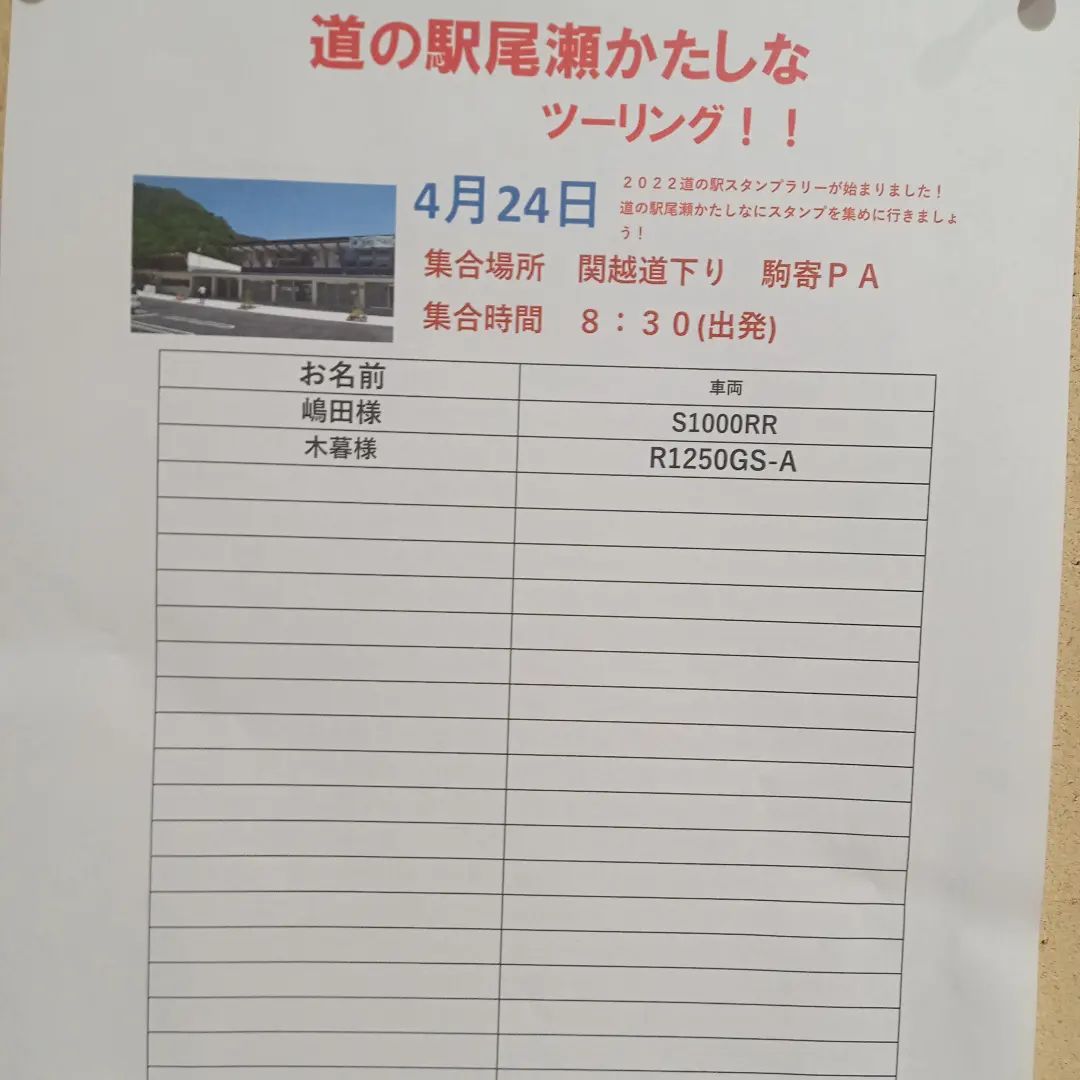 道の駅尾瀬かたしな
ツーリング！！
4月24日
２０２２道の駅スタンプラリーが始まりました！
道の駅尾瀬かたしなにスタンプを集めに行きましょ
う！
集合場所　関越道下り　駒寄ＰＡ
集合時間　８：３０(出発)
お名前　車両
嶋田様　S1000RR
木暮様　R1250GS-A